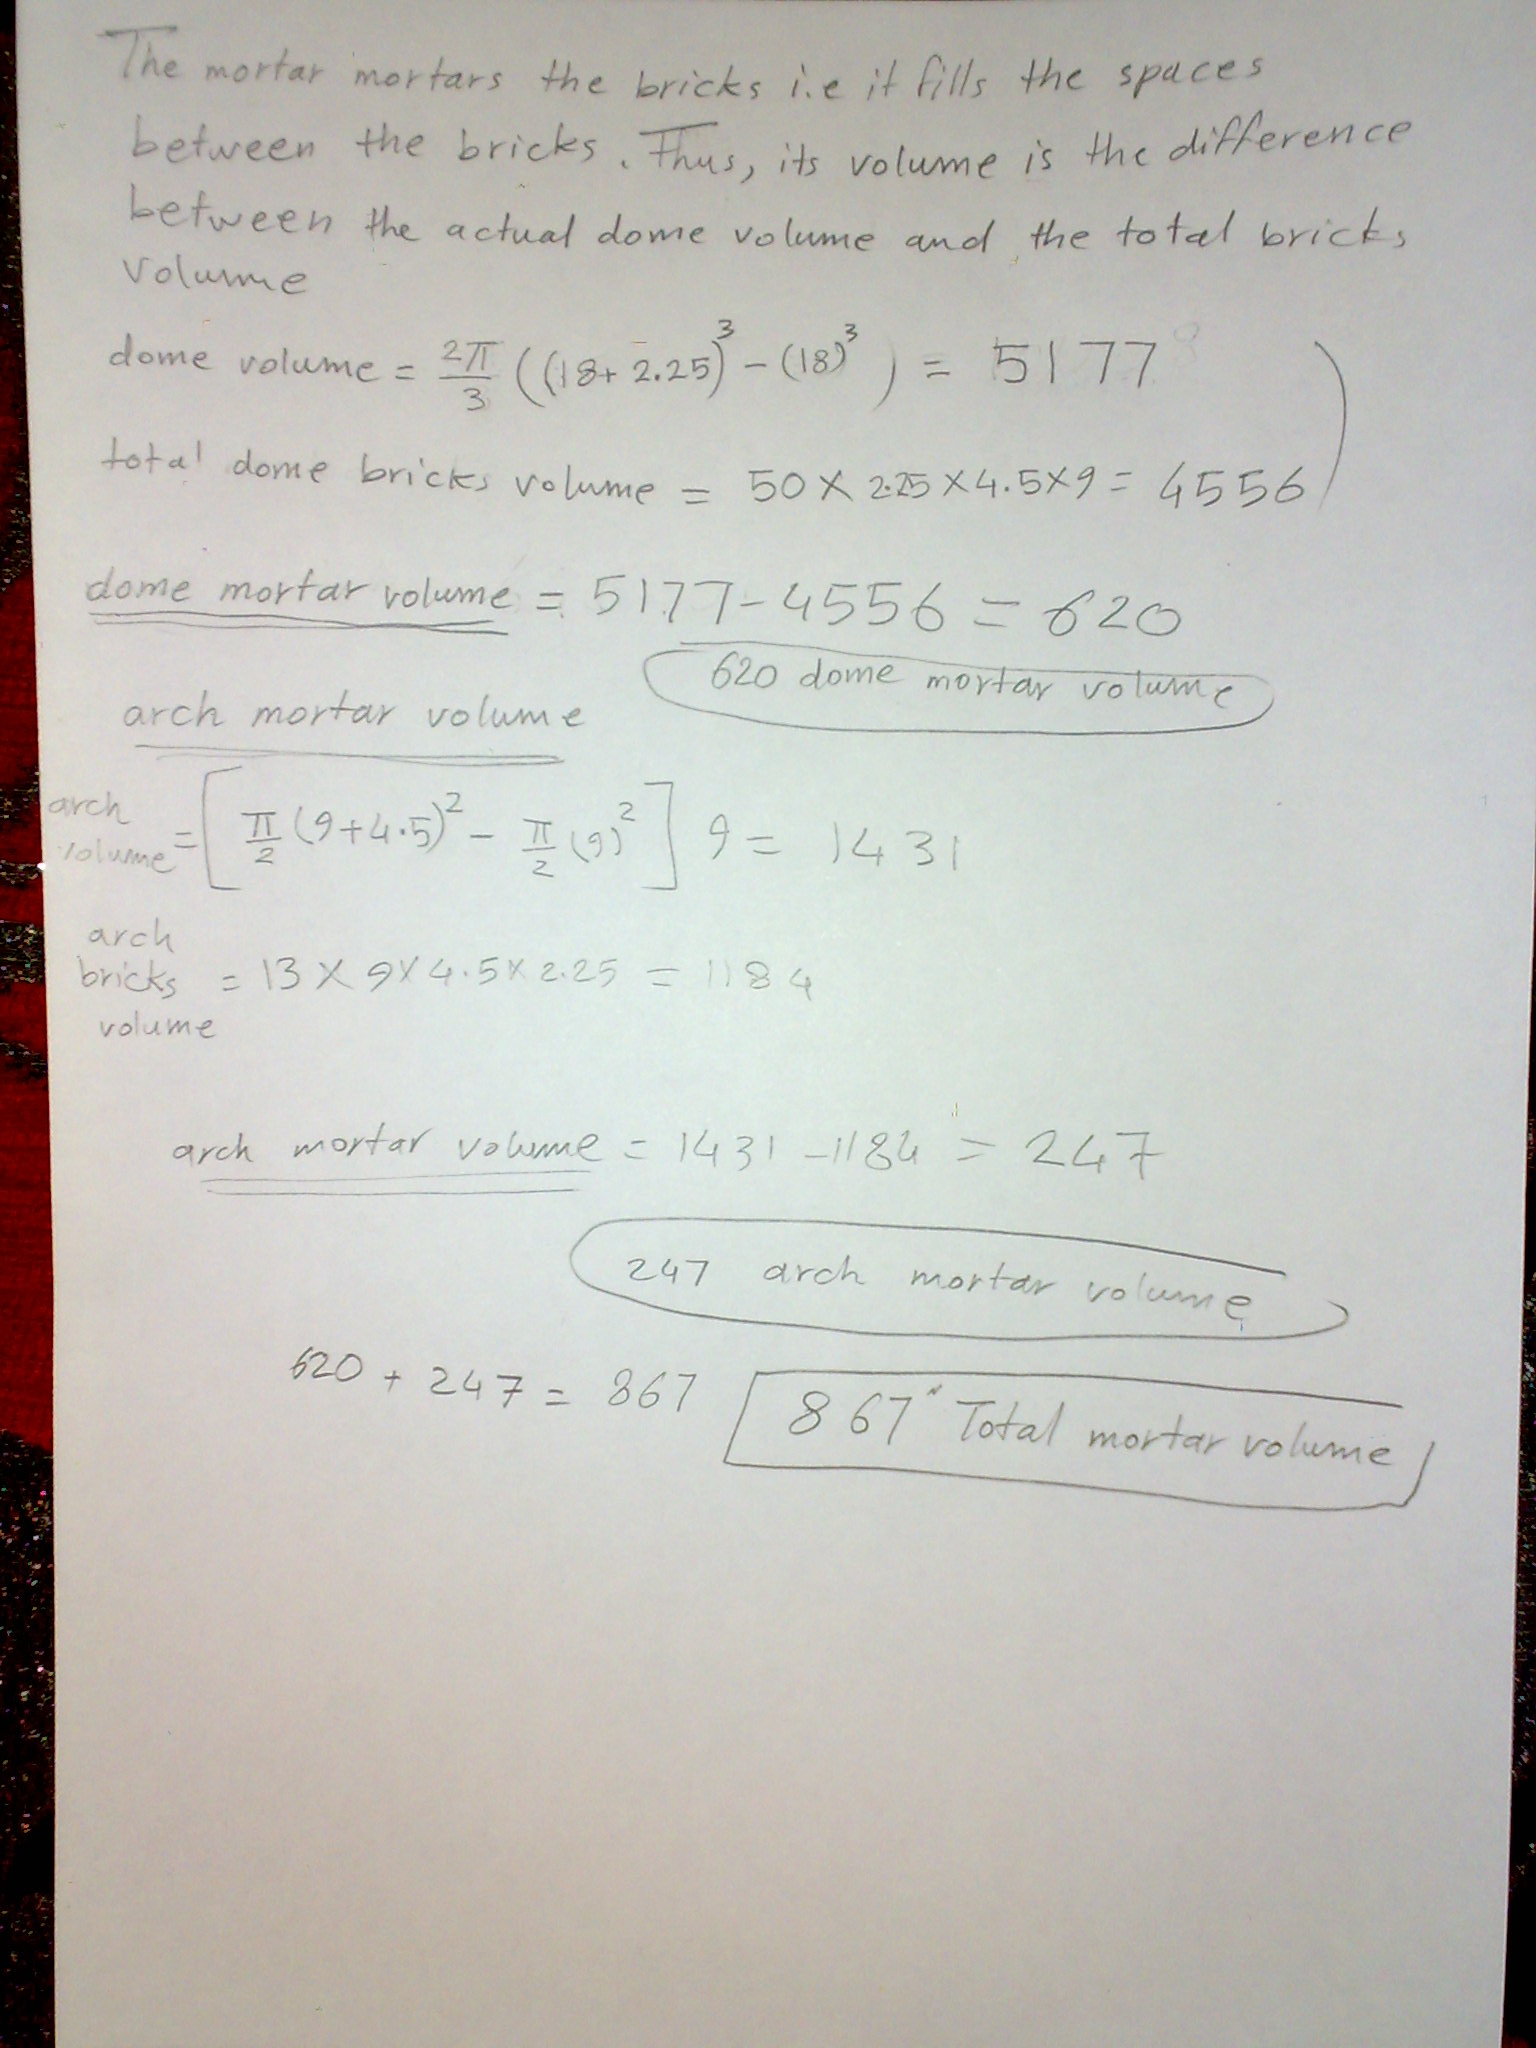 The mortar mortars the bricks i.e it fills the spaces
between the bricks. Thus, its volume is the difference
between the actual dome volume and the total bricks
volume
dome volume = 2π/3 ((18+2.25)³ - (18)³) = 5177
total dome bricks volume = 50 × 2.25 × 4.5 × 9 = 4556
dome mortar volume = 5177 - 4556 = 620
620 dome mortar volume
arch mortar volume
arch volume = [π/2 (9+4.5)² - π/2 (9)²] 9 = 1431
arch bricks volume = 13 × 9 × 4.5 × 2.25 = 1184
arch mortar volume = 1431 - 1184 = 247
247 arch mortar volume
620 + 247 = 867
867" Total mortar volume